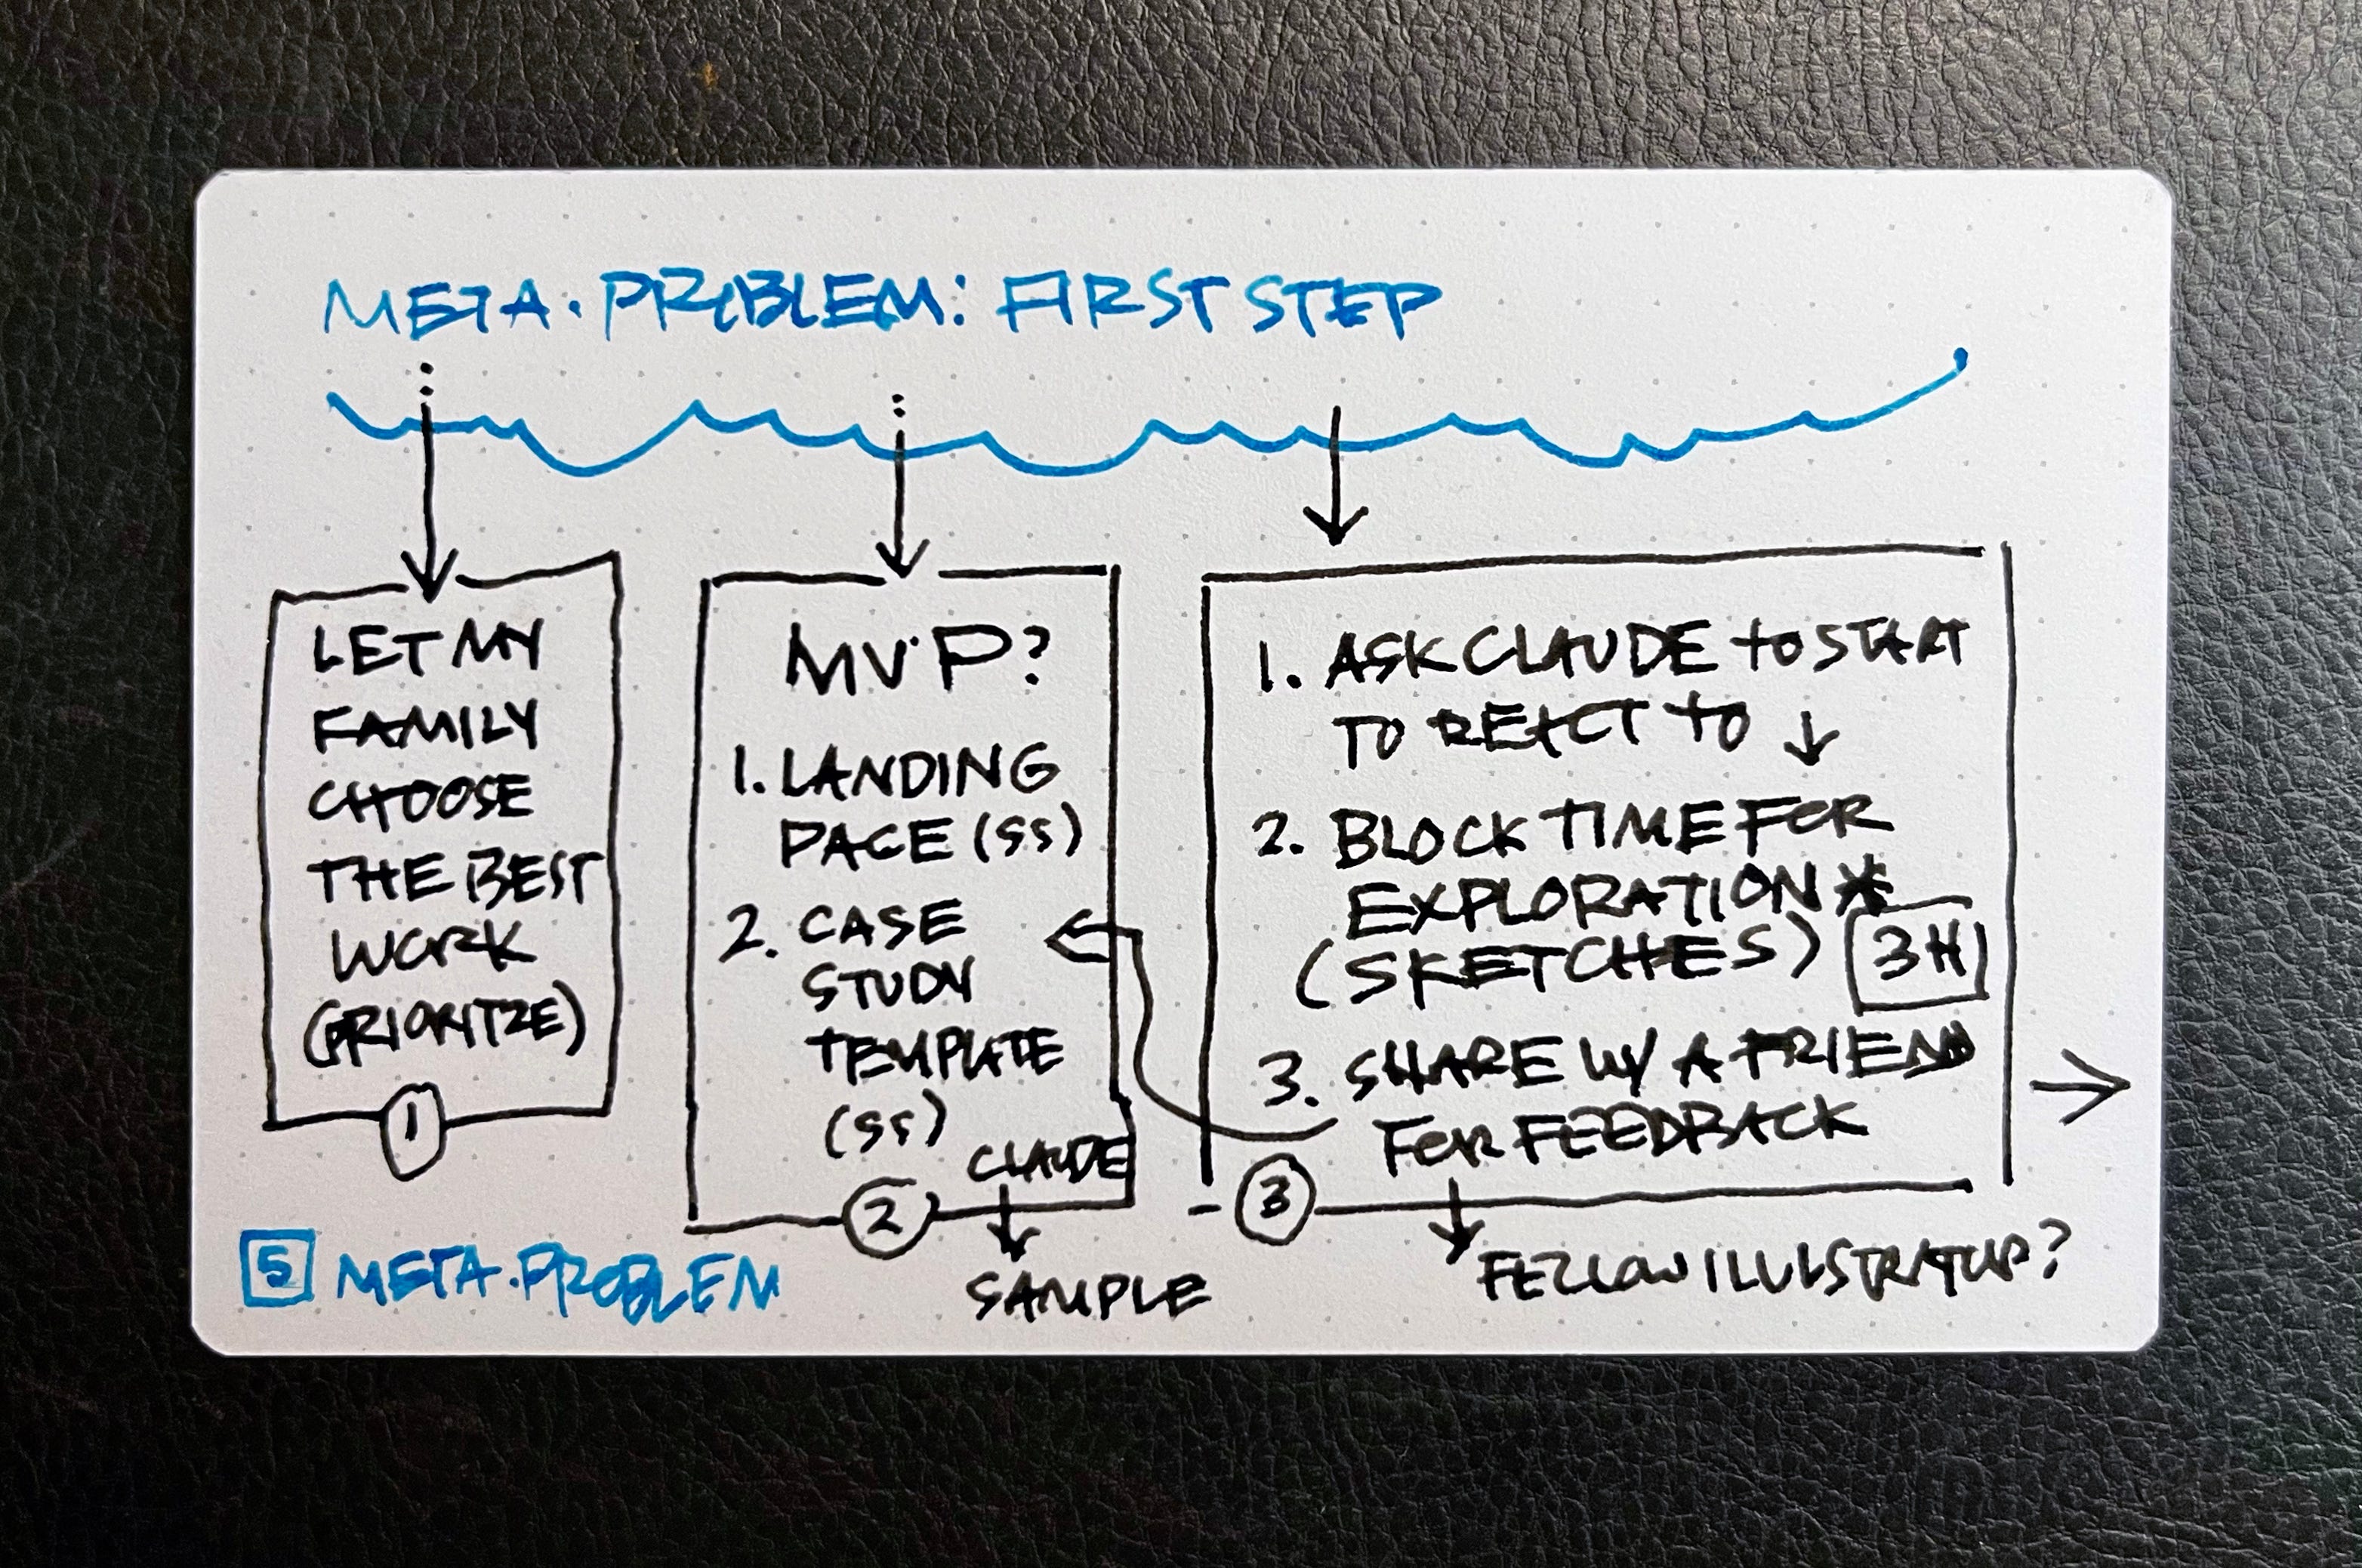 META.PROBLEM: FIRST STEP
LET MY
FAMILY
CHOOSE
THE BEST
WORK
(PRIORITZE)
1
MVP?
1. LANDING
PAGE (SS)
2. CASE
STUDY
TEMPLATE
(SS)
CLAUDE
2
SAMPLE
1. ASK CLAUDE TO START
TO REACT TO ↓
2. BLOCK TIME FOR
EXPLORATION *
(SKETCHES) 3H
3. SHARE W/ A FRIEND
FOR FEEDBACK
3
FELLOW ?
5 META.PROBLEM